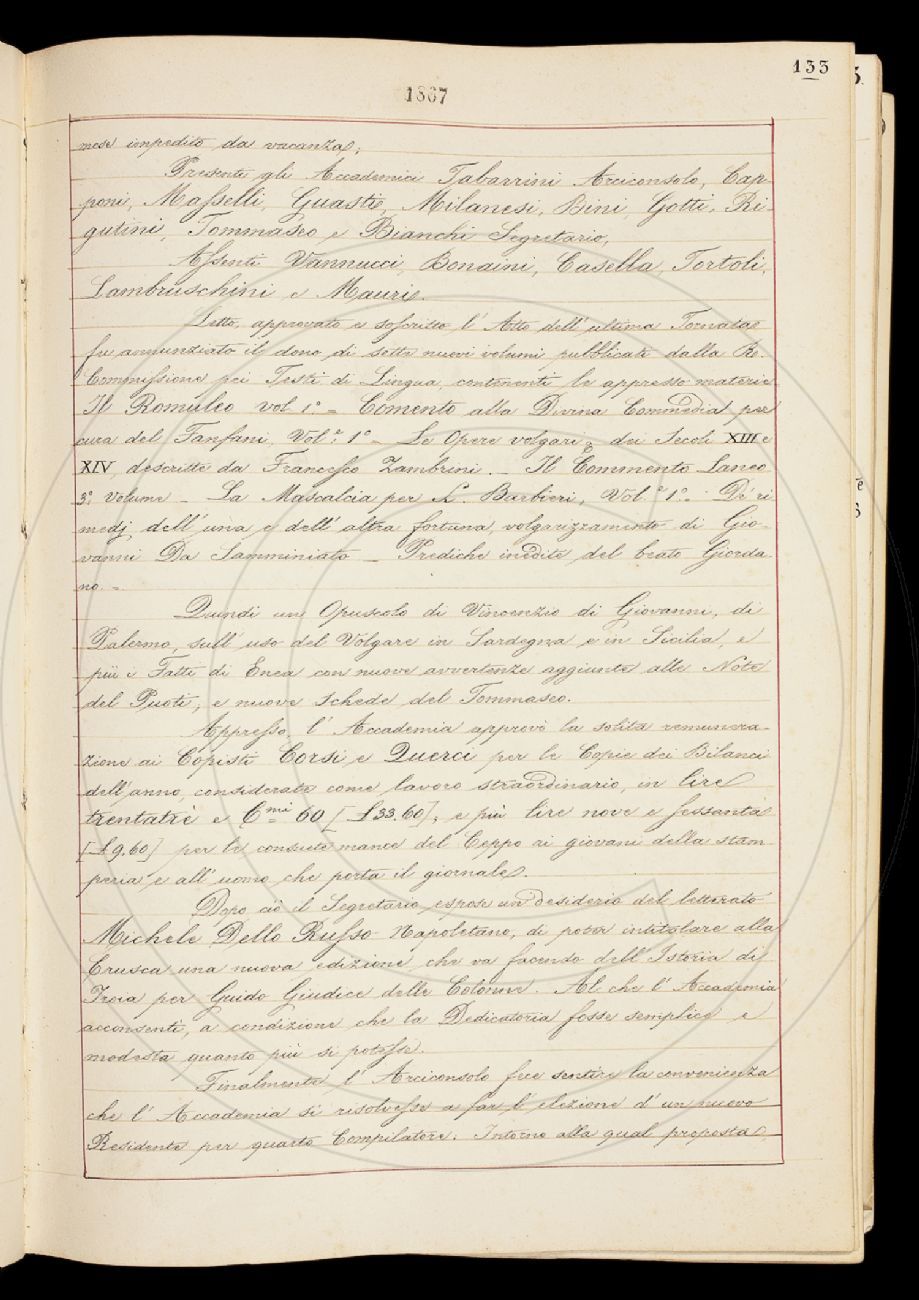 133
1867
mese impedito da vacanza;
Presenti gli Accademici Tabarrini Arciconsolo, Cap-
poni, Masselli, Guasti, Milanesi, Bini, Gotti, Ri-
gutini, Tommaseo e Bianchi Segretario,
Assenti Vannucci, Bonaini, Casella, Tortoli,
Lambruschini e Mauri.
Letto, approvato e soscritto l'Atto dell'ultima Tornata
fu annunziato il dono di sette nuovi volumi pubblicati dalla R.
Commissione pei Testi di Lingua, contenenti le appresso materie
Il Romuleo vol. 1.° = Comento alla Divina Commedia per
cura del Fanfani, Vol.e 1° - Le Opere volgari a dei Secoli XIII e
XIV, descritte da Francesco Zambrini. - Il Commento Laneo
3.° Volume - La Mascalcia per L. Barbieri, Vol.e 1.° - De' ri
medj dell'una e dell'altra fortuna, volgarizzamento di Gio-
vanni Da Samminiato - Prediche inedite del beato Giorda
no. =
Quindi un Opuscolo di Vincenzio di Giovanni, di
Palermo, sull'uso del Volgare in Sardegna e in Sicilia, e
più i Fatti di Enea con nuove avvertenze aggiunte alle Note
del Puoti; e nuove Schede del Tommaseo.
Appresso l'Accademia approvò la solita remunera-
zione ai Copisti Corsi e Querci per le Copie dei Bilanci
dell'anno, considerate come lavoro straordinario, in lire
trentatrè e C.mi 60 [£ 33.60]; e più lire nove e sessanta
[£ 9.60] per le consuete mance del Ceppo ai giovani della stam
peria e all'uomo che porta il giornale.
Dopo ciò il Segretario espose un desiderio del letterato
Michele Dello Russo Napoletano, di poter intitolare alla
Crusca una nuova edizione che va facendo dell'Istoria di
Troia per Guido Giudice delle Colonne. Al che l'Accademia
acconsentì, a condizione che la Dedicatoria fosse semplice e
modesta quanto più si potesse.
Finalmente l'Arciconsolo fece sentire la convenienza
che l'Accademia si risolvesse a far l'elezione d'un nuovo
Residente per quarto Compilatore. Intorno alla qual proposta,